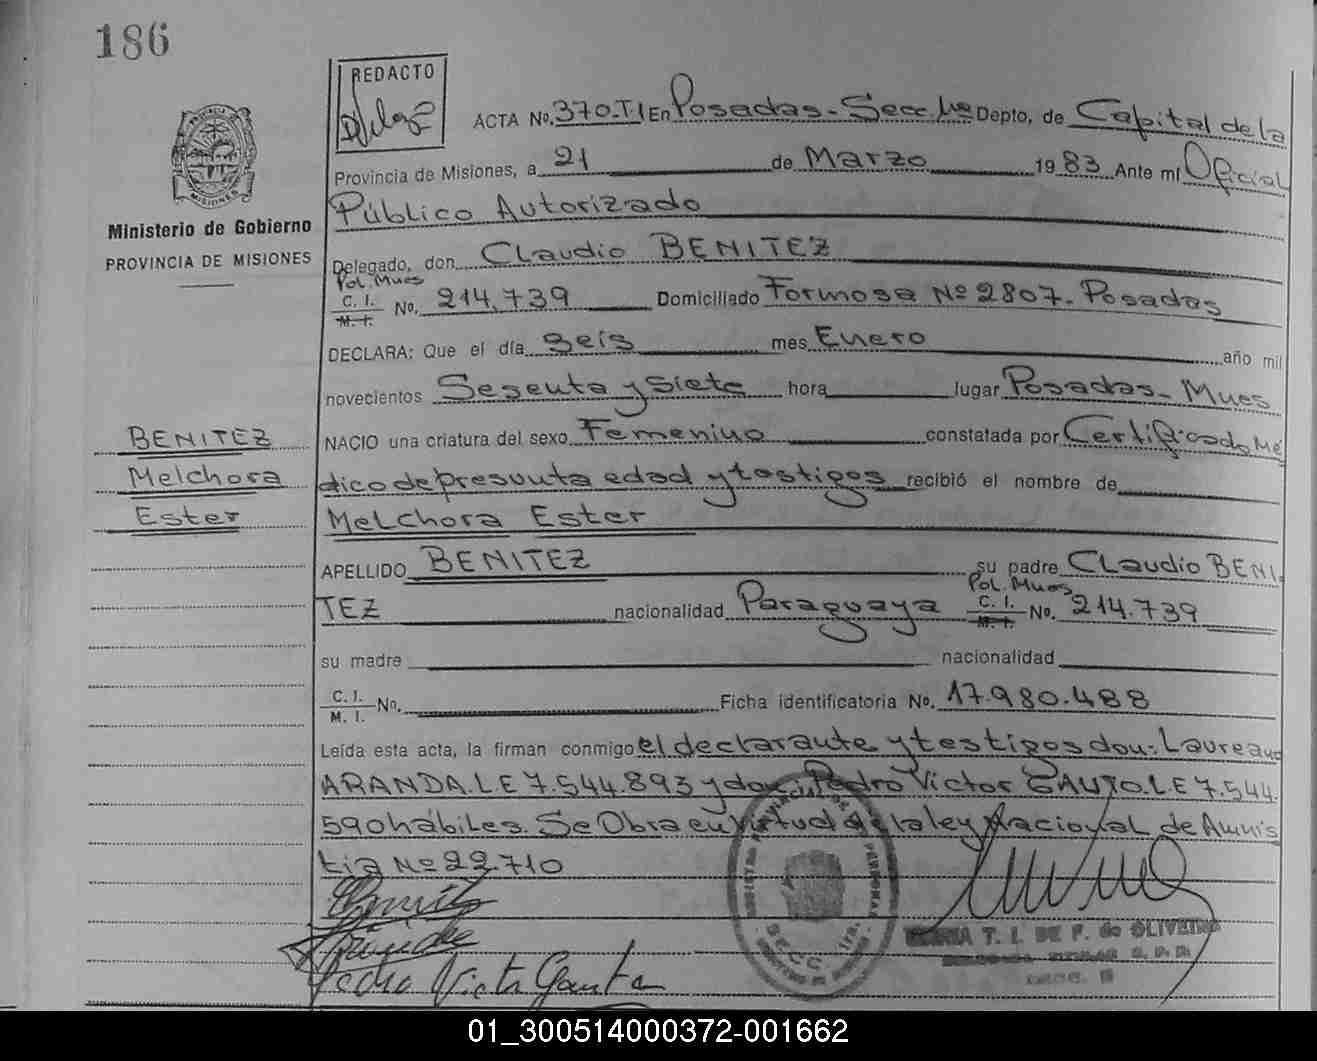 186
REDACTO
ACTA No. 370.T I En Posadas - Secc. 1ª Depto, de Capital de la
Provincia de Misiones, a 21 de Marzo 1983 Ante mí Oficial
Público Autorizado
Ministerio de Gobierno
PROVINCIA DE MISIONES
Delegado, don Claudio BENITEZ
Pol. Mnes
C. I.
M. I. No. 214.739 Domiciliado Formosa Nº 2807. Posadas
DECLARA: Que el día Seis mes Enero año mil
novecientos Sesenta y Siete hora lugar Posadas - Mnes
BENITEZ
Melchora
Ester
NACIO una criatura del sexo Femenino constatada por Certificado Mé
dico de presunta edad y testigos recibió el nombre de
Melchora Ester
APELLIDO BENITEZ su padre Claudio BENI.
TEZ nacionalidad Paraguaya Pol. Mnes C. I. M. I. No. 214.739
su madre nacionalidad
C. I.
M. I. No. Ficha identificatoria No. 17.980.488
Leída esta acta, la firman conmigo el declarante y testigos don: Laureano
ARANDA.L.E 7.544.893 y don: Pedro Victor GAUTO.L.E 7.544.
590 hábiles. Se Obra en virtud de la ley Nacional de Amnis
tia Nº 22.710
Pedro Victor Gauto
T. I. DE F. de OLIVEIRA
01_300514000372-001662